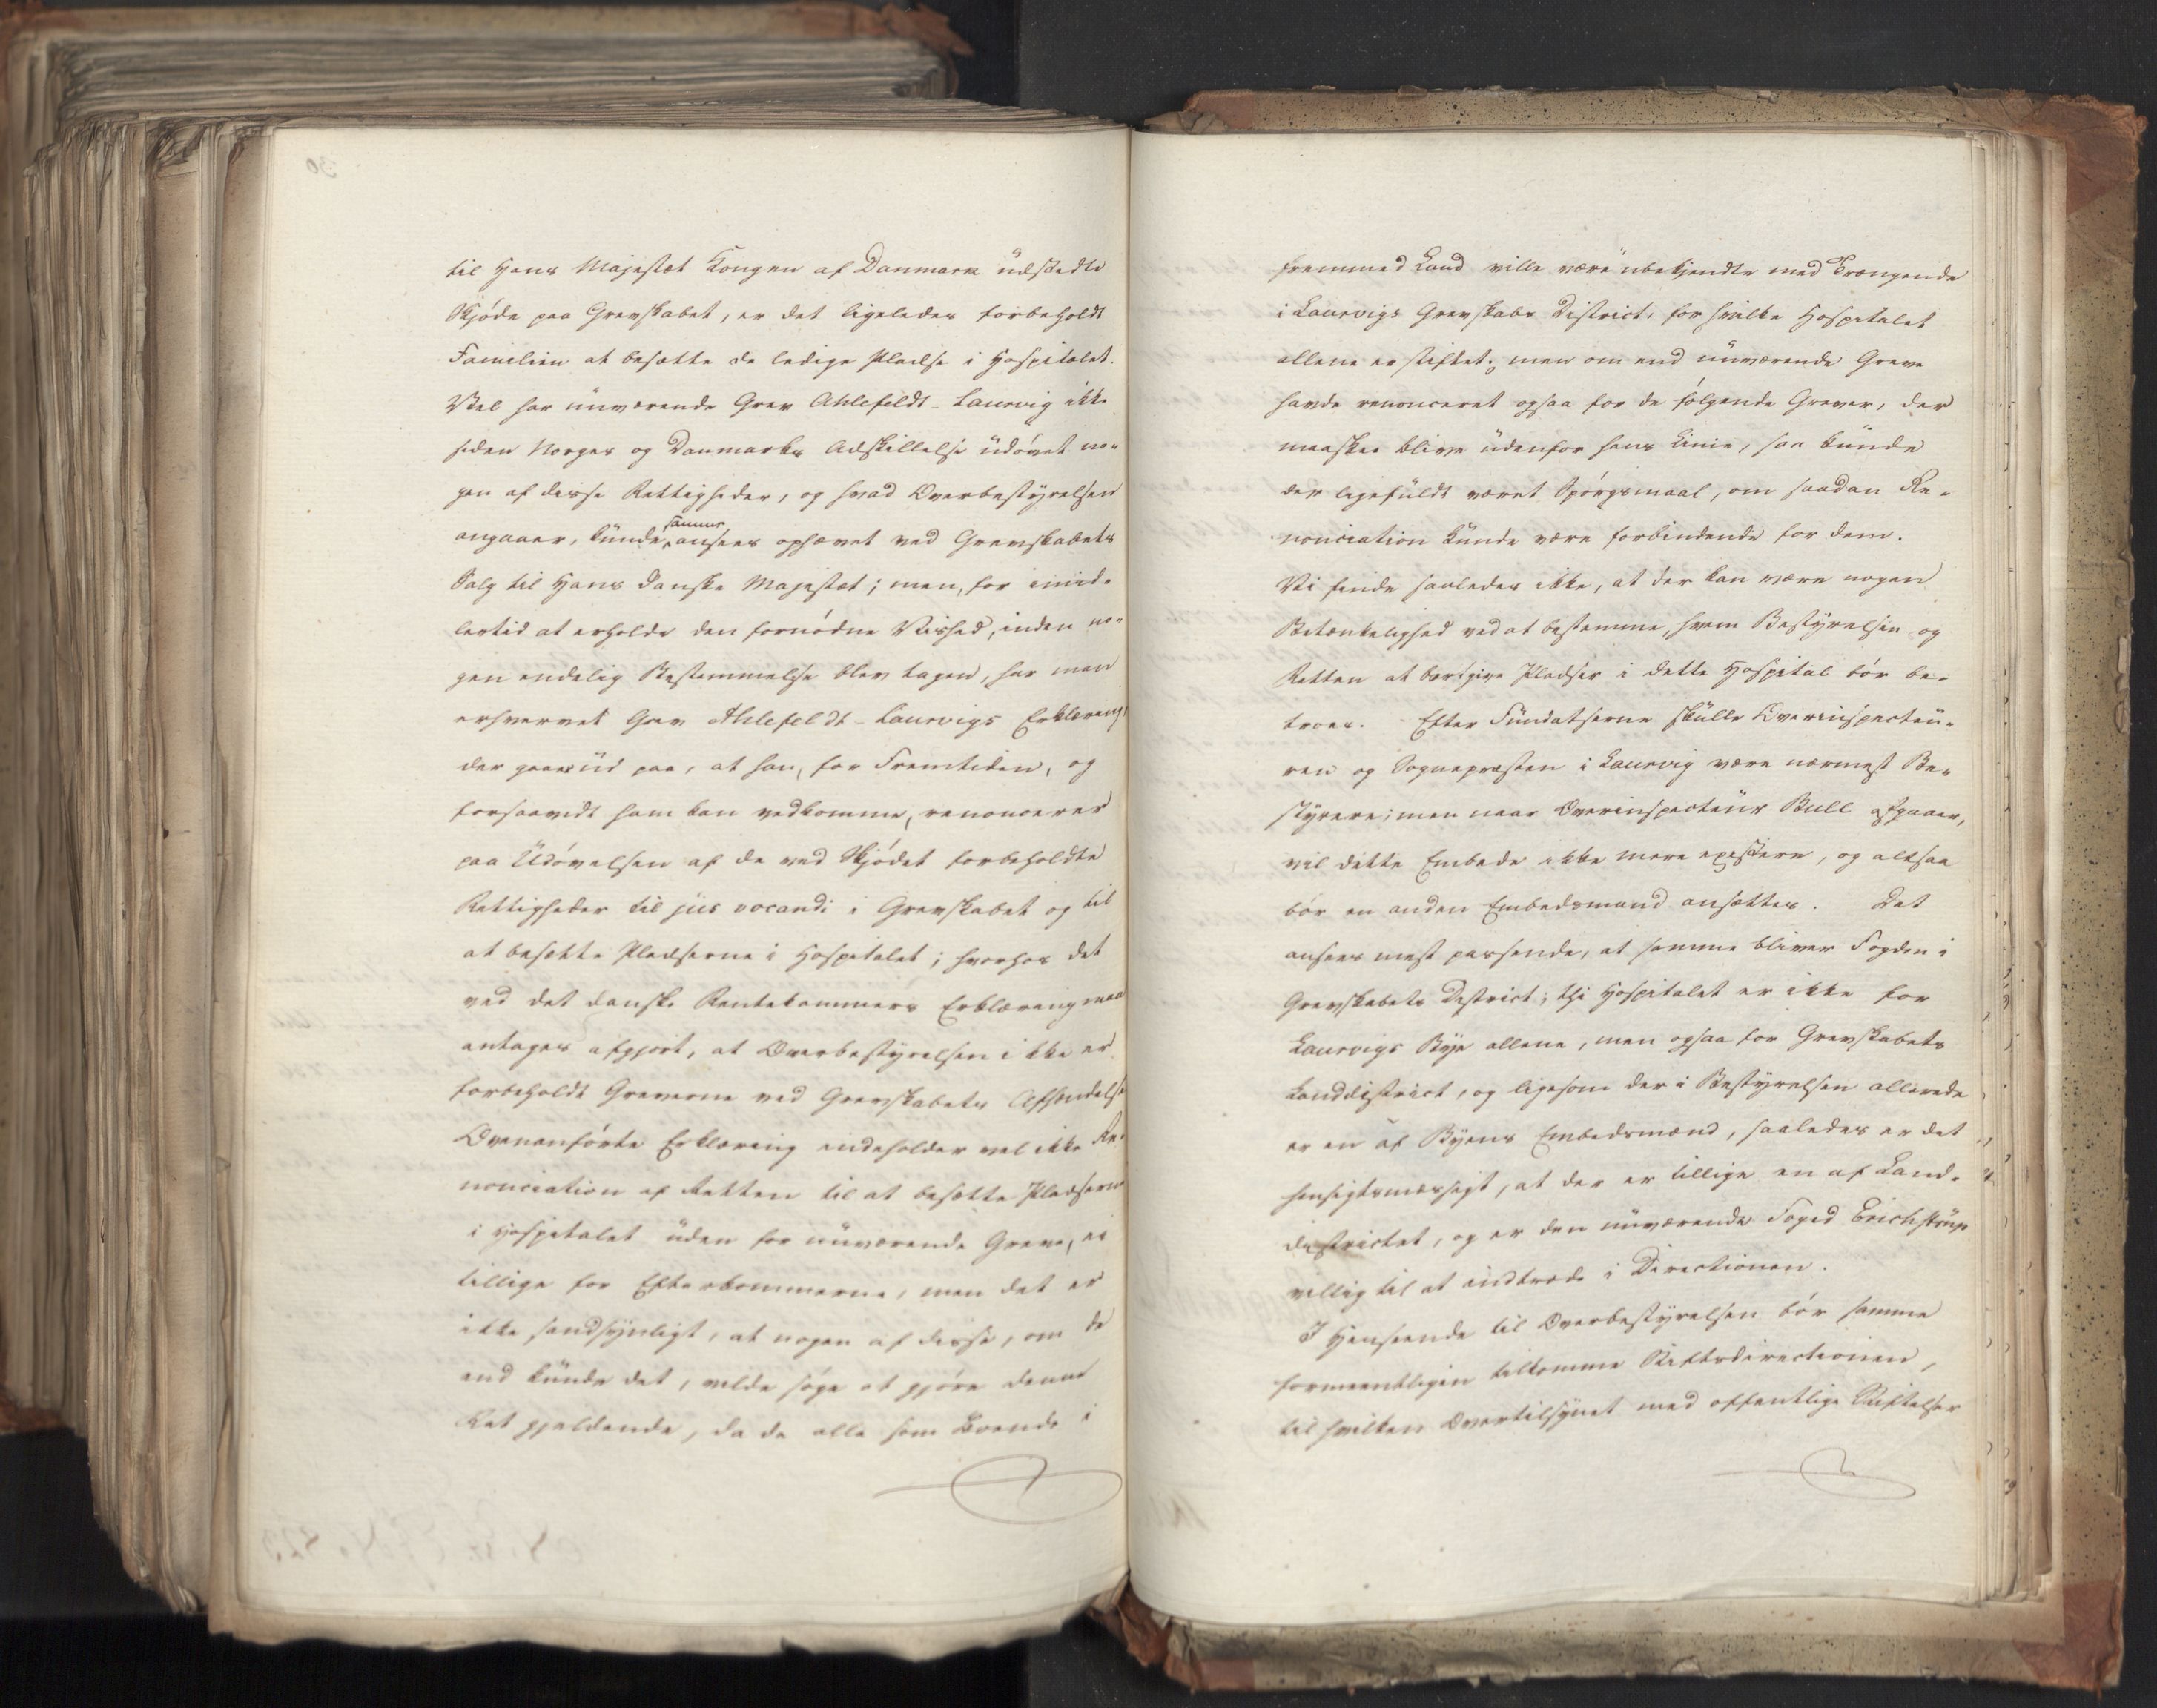 til Hans Majestæt Kongen af Danmark udstedte
Skjöde paa Grevskabet, er det ligeledes forbeholdt
Familien at besætte de ledige Pladse i Hospitalet.
Vel har nuværende Grev Ahlefeldt-Laurvig ikke
siden Norges og Danmarks Adskillelse udövet no-
gen af disse Rettigheder, og hvad Overbestyrelsen
angaaer, kunde samme ansees ophævet ved Grevskabets
Salg til Hans Danske Majestæt; men, for imid-
lertid at erholde den fornödne Vished, inden no-
gen endelig Bestemmelse blev tagen, har man
erhvervet Grev Ahlefeldt-Laurvigs Erklæring,
der gaaer ud paa, at han, for Fremtiden, og
forsaavidt ham kan vedkomme, renoncerer
paa Udövelsen af de ved Skjödet forbeholdte
Rettigheder til jus vocandi i Grevskabet og til
at besætte Pladserne i Hospitalet; hvorhos det
ved det danske Rentekammers Erklæring maa
antages afgjort, at Overbestyrelsen ikke er
forbeholdt Greverne ved Grevskabets Afhændelse
Ovenanförte Erklæring indeholder vel ikke Re-
nonciation af Retten til at besætte Pladserne
i Hospitalet uden for nuværende Greve, ei
tillige for Efterkommerne, men det er
ikke sandsynligt, at nogen af disse, om de
end kunde det, vilde söge at gjöre denne
Ret gjeldende, da de alle som boende i
fremmed Land ville være ubekjendte med Trængende
i Laurvigs Grevskabs District, for hvilke Hospitalet
allene er stiftet; men om end nuværende Greve
havde renonceret ogsaa for de fölgende Grever, der
maaskee blive udenfor hans Linie, saa kunde
der ligefuldt været Spörgsmaal, om saadan Re-
nonciation kunde være forbindende for dem.
Vi finde saaledes ikke, at der kan være nogen
Betænkelighed ved at bestemme, hvem Bestyrelsen og
Retten at bortgive Pladser i dette Hospital bör be-
troes. Efter Fundatserne skulle Overinspecteu-
ren og Sognepræsten i Laurvig være nærmest Be-
styrere; men naar Overinspecteur Bull afgaaer,
vil dette Embede ikke mere existere, og altsaa
bör en anden Embedsmand ansættes. Det
ansees mest passende, at samme bliver Fogden i
Grevskabets District; thi Hospitalet er ikke for
Laurvigs Bye allene, men ogsaa for Grevskabets
Landdistrict, og ligesom der i Bestyrelsen allerede
er en af Byens Embedsmænd, saaledes er det
hensigtsmæssigt, at der er tillige en af Land-
districtet, og er den nuværende Foged Erichstrup
villig til at indtræde i Directionen.
I Henseende til Overbestyrelsen bör samme
formeentligen tilkomme Stiftsdirectionen,
til hvilken Overtilsynet med offentlige Stiftelser